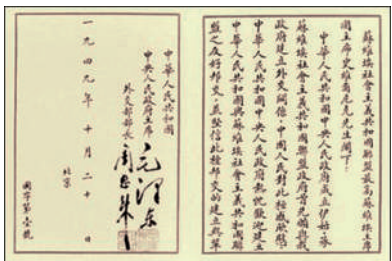 蘇維埃社會主義共和國聯盟最高蘇維埃主席
國主席史維爾尼克先生閣下：
中華人民共和國中央人民政府成立伊始，承
蘇維埃社會主義共和國聯盟政府首先賜與我
政府建立外交關係，中國人民對此極感欣慰。
中華人民共和國中央人民政府熱忱歡迎建立
中華人民共和國與蘇維埃社會主義共和國聯
盟之友好邦交，並堅信此種邦交的建立與鞏
中華人民共和國
中央人民政府主席
毛澤東
外交部部長
周恩來
一九四九年十月二十日
北京
國字第壹號